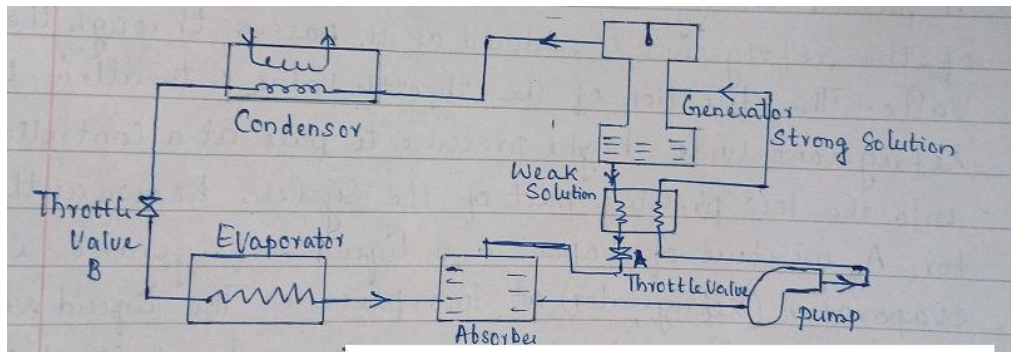 Condensor
Generator
Strong Solution
Weak
Solution
Throttle
Value
B
Evaporator
A
Throttle Value
Absorber
pump